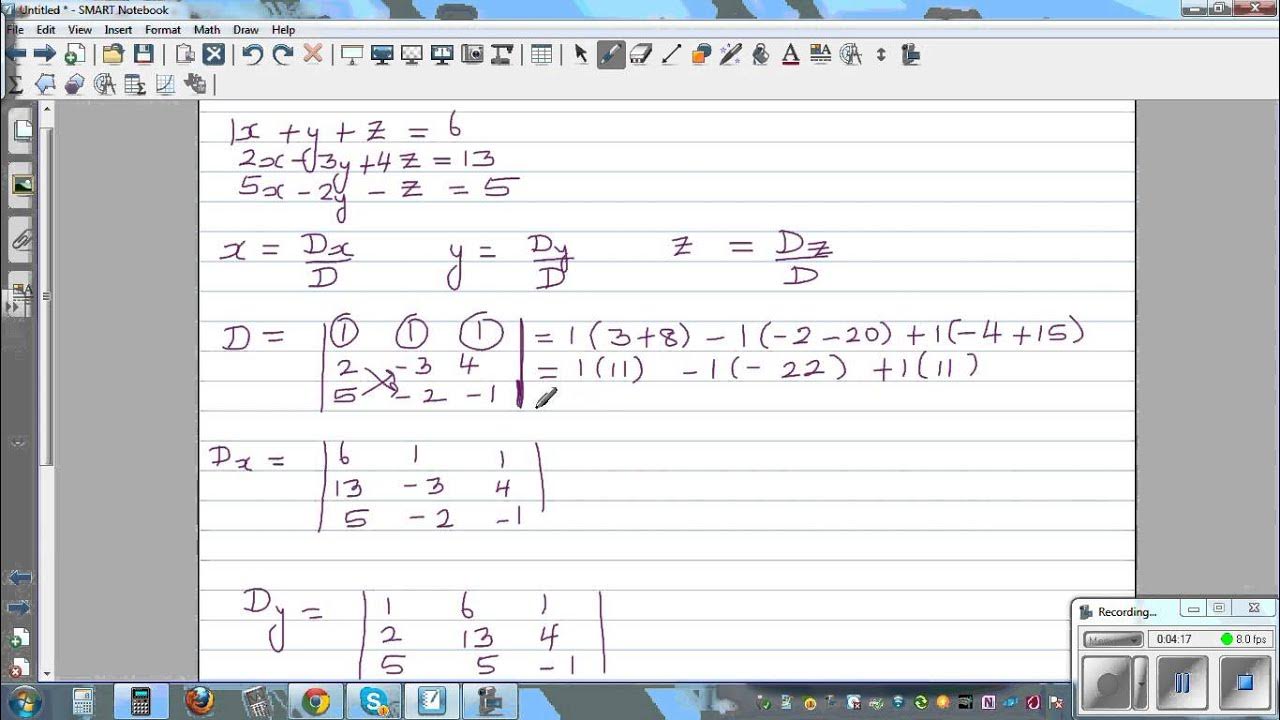 Untitled * - SMART Notebook
File Edit View Insert Format Math Draw Help
1x + y + z = 6
2x - 3y + 4z = 13
5x - 2y - z = 5
x = Dx/D y = Dy/D z = Dz/D
D = | 1 1 1 | = 1(3+8) - 1(-2-20) + 1(-4+15)
2 -3 4 = 1(11) -1(-22) +1(11)
5 -2 -1
Dx = | 6 1 1 |
13 -3 4
5 -2 -1
Dy = | 1 6 1 |
2 13 4
5 5 -1
Recording...
0:04:17 8.0 fps